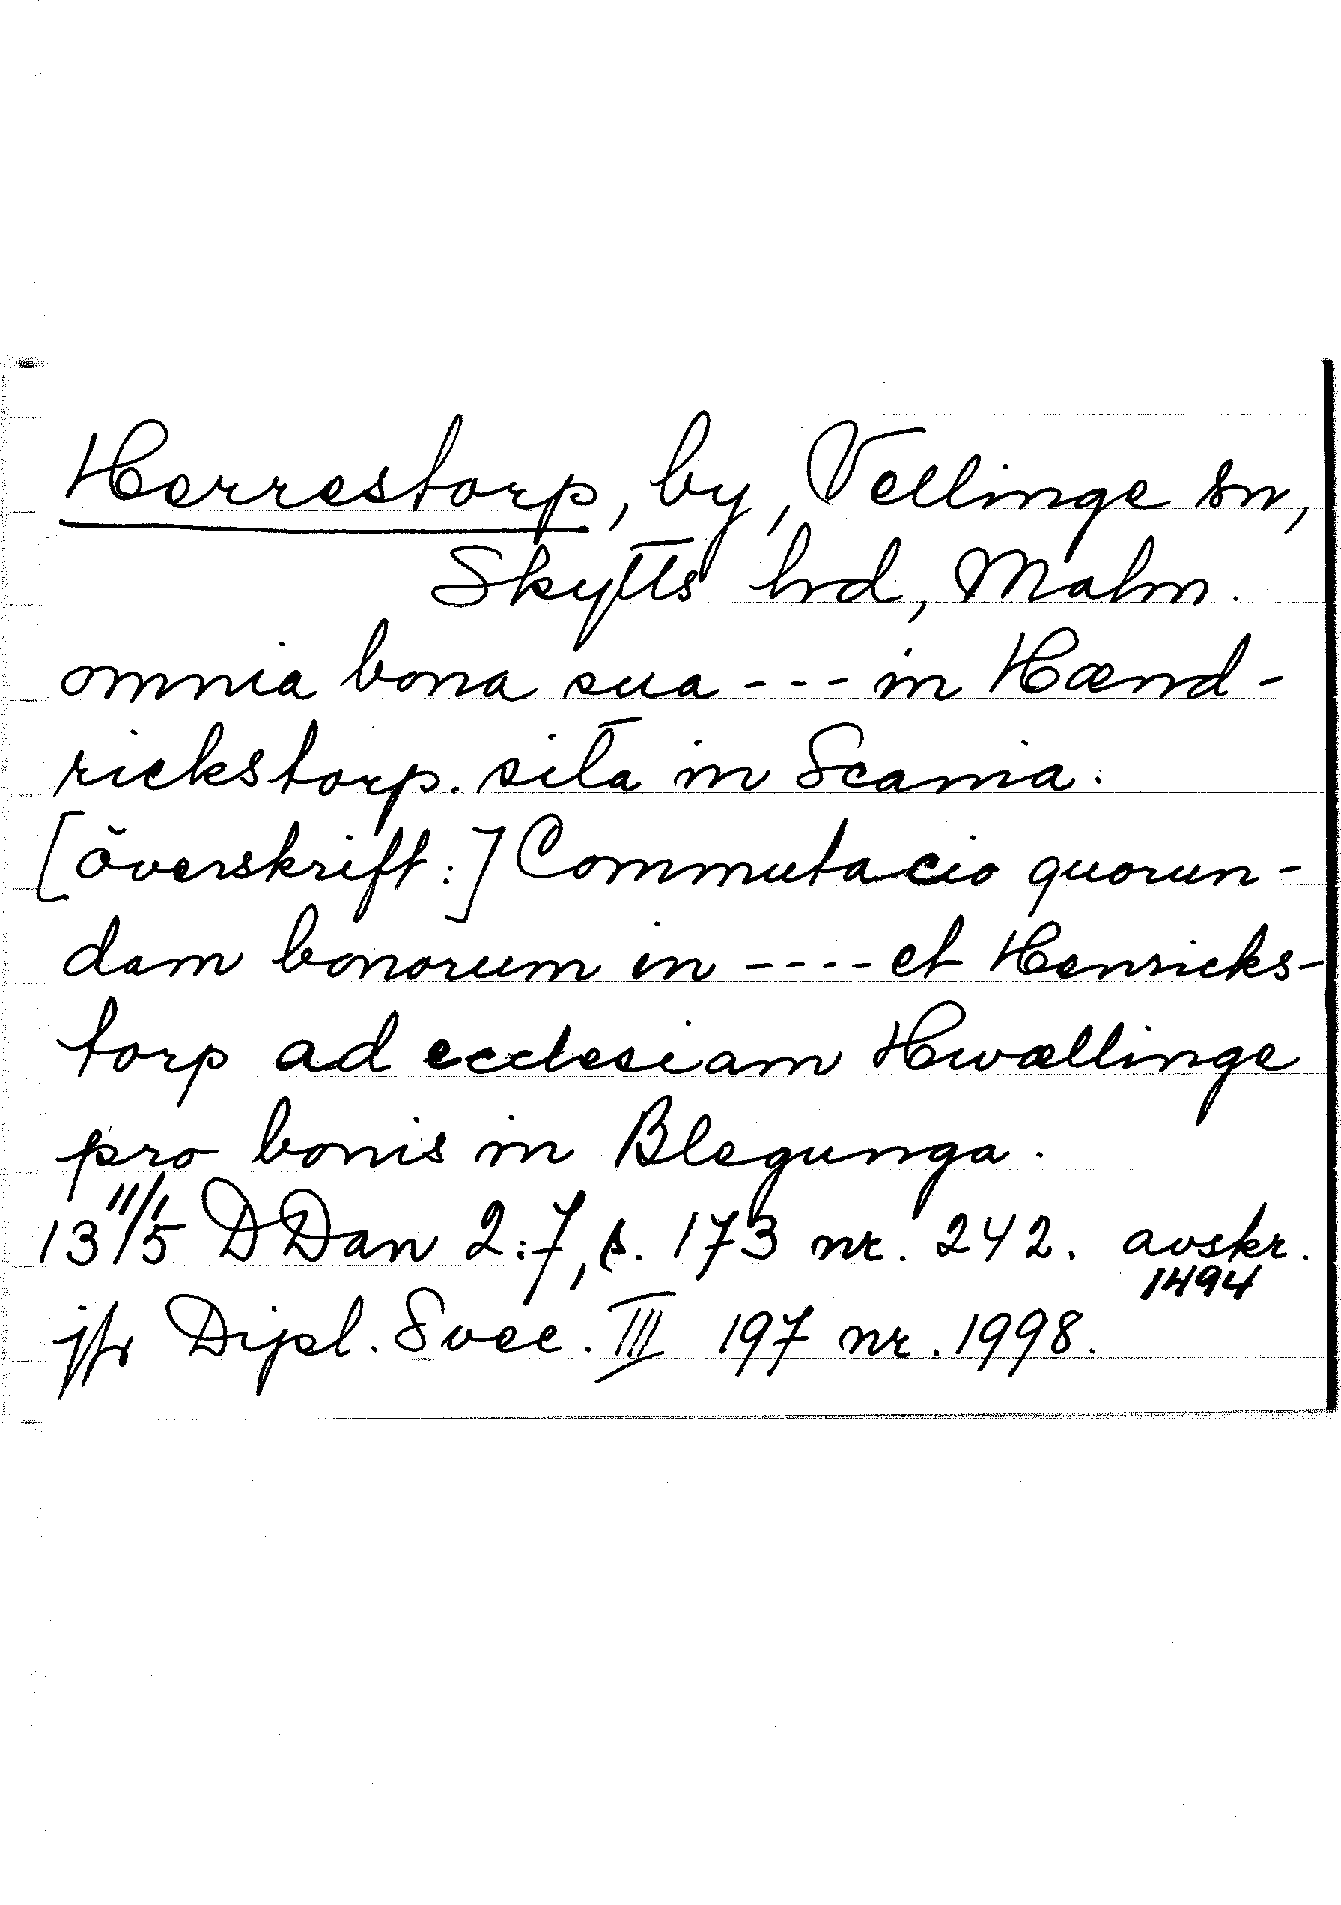 Herrestorp, by, Vellinge sn,
Skytts hd, Malm.
omnia bona sua --- in Hænd-
rickstorp. sita in Scania.
[överskrift:] Commutacio quorun-
dam bonorum in ---- et Henricks-
torp ad ecclesiam Hwællinge
pro bonis in Blegunga.
13 11/1 15 DDan 2:7, s. 173 nr. 242. avskr. 1494
jfr Dipl. Svec. III 197 nr. 1998.